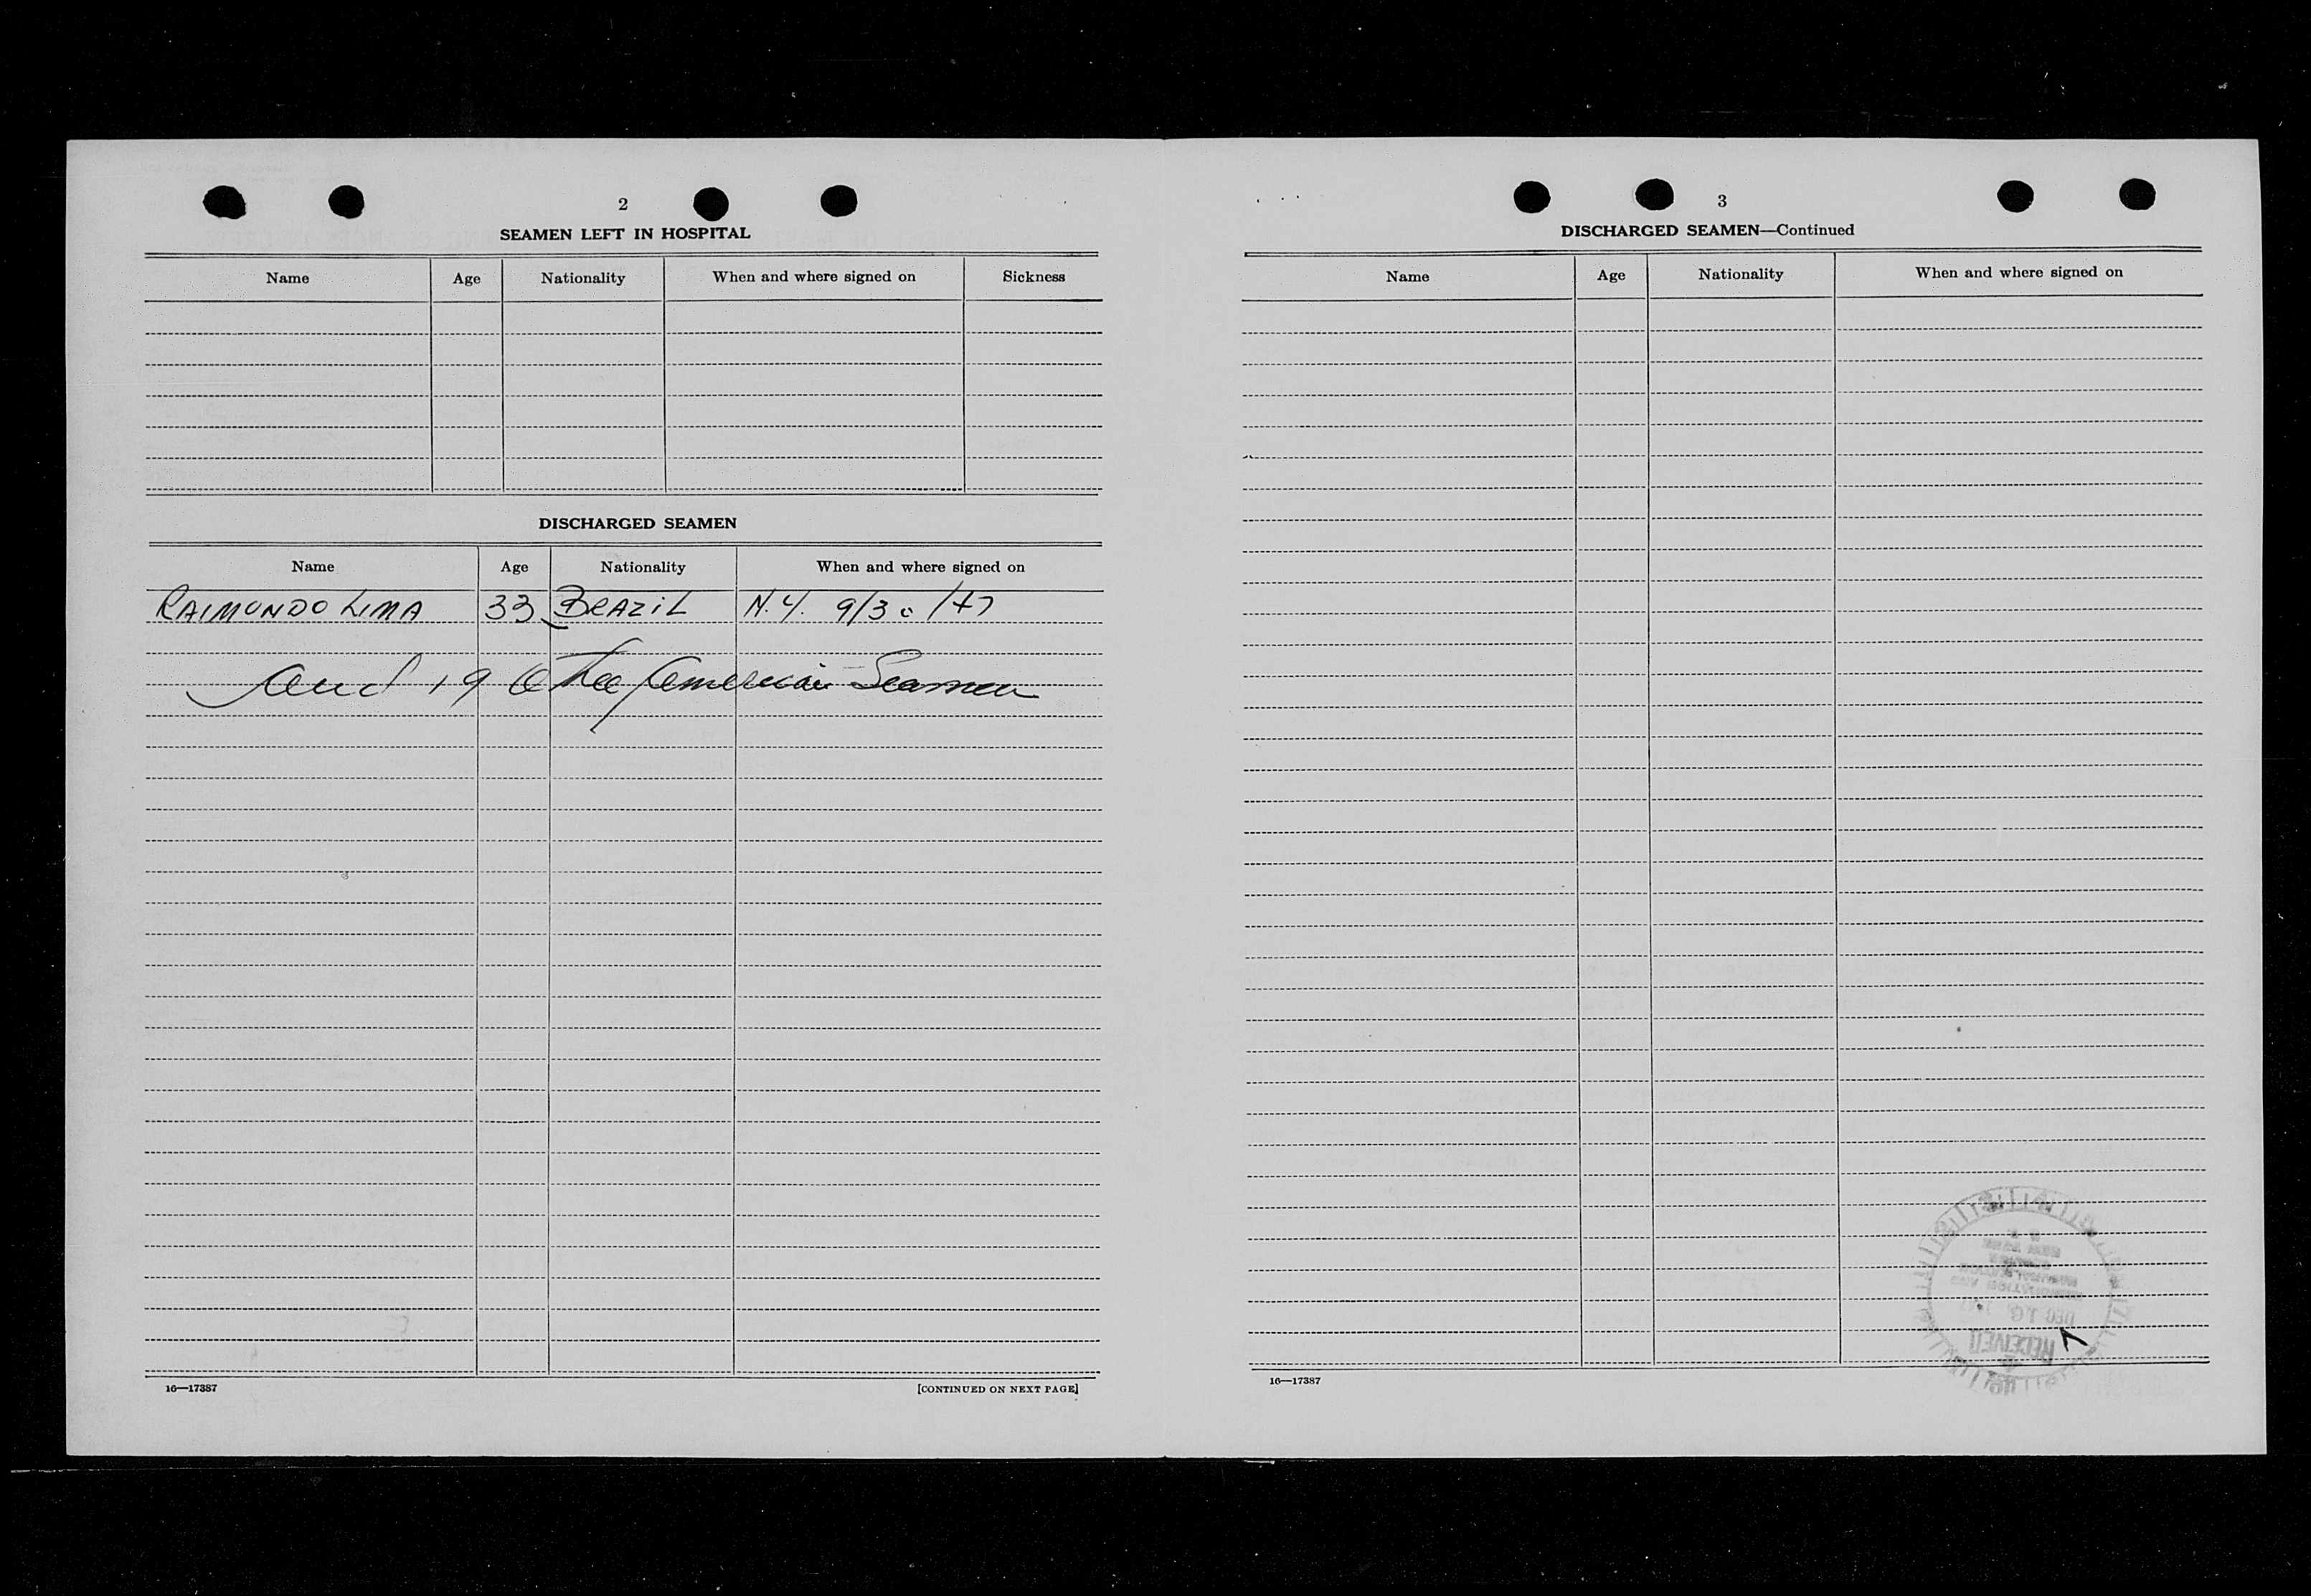 2
SEAMEN LEFT IN HOSPITAL
Name Age Nationality When and where signed on Sickness
DISCHARGED SEAMEN
Name Age Nationality When and where signed on
RAIMONDO LIMA 33 BRAZIL N.Y. 9/30/47
and 19 Other American Seamen
16—17387 [CONTINUED ON NEXT PAGE]
3
DISCHARGED SEAMEN—Continued
Name Age Nationality When and where signed on
DEC 16
RECEIVED
16—17387